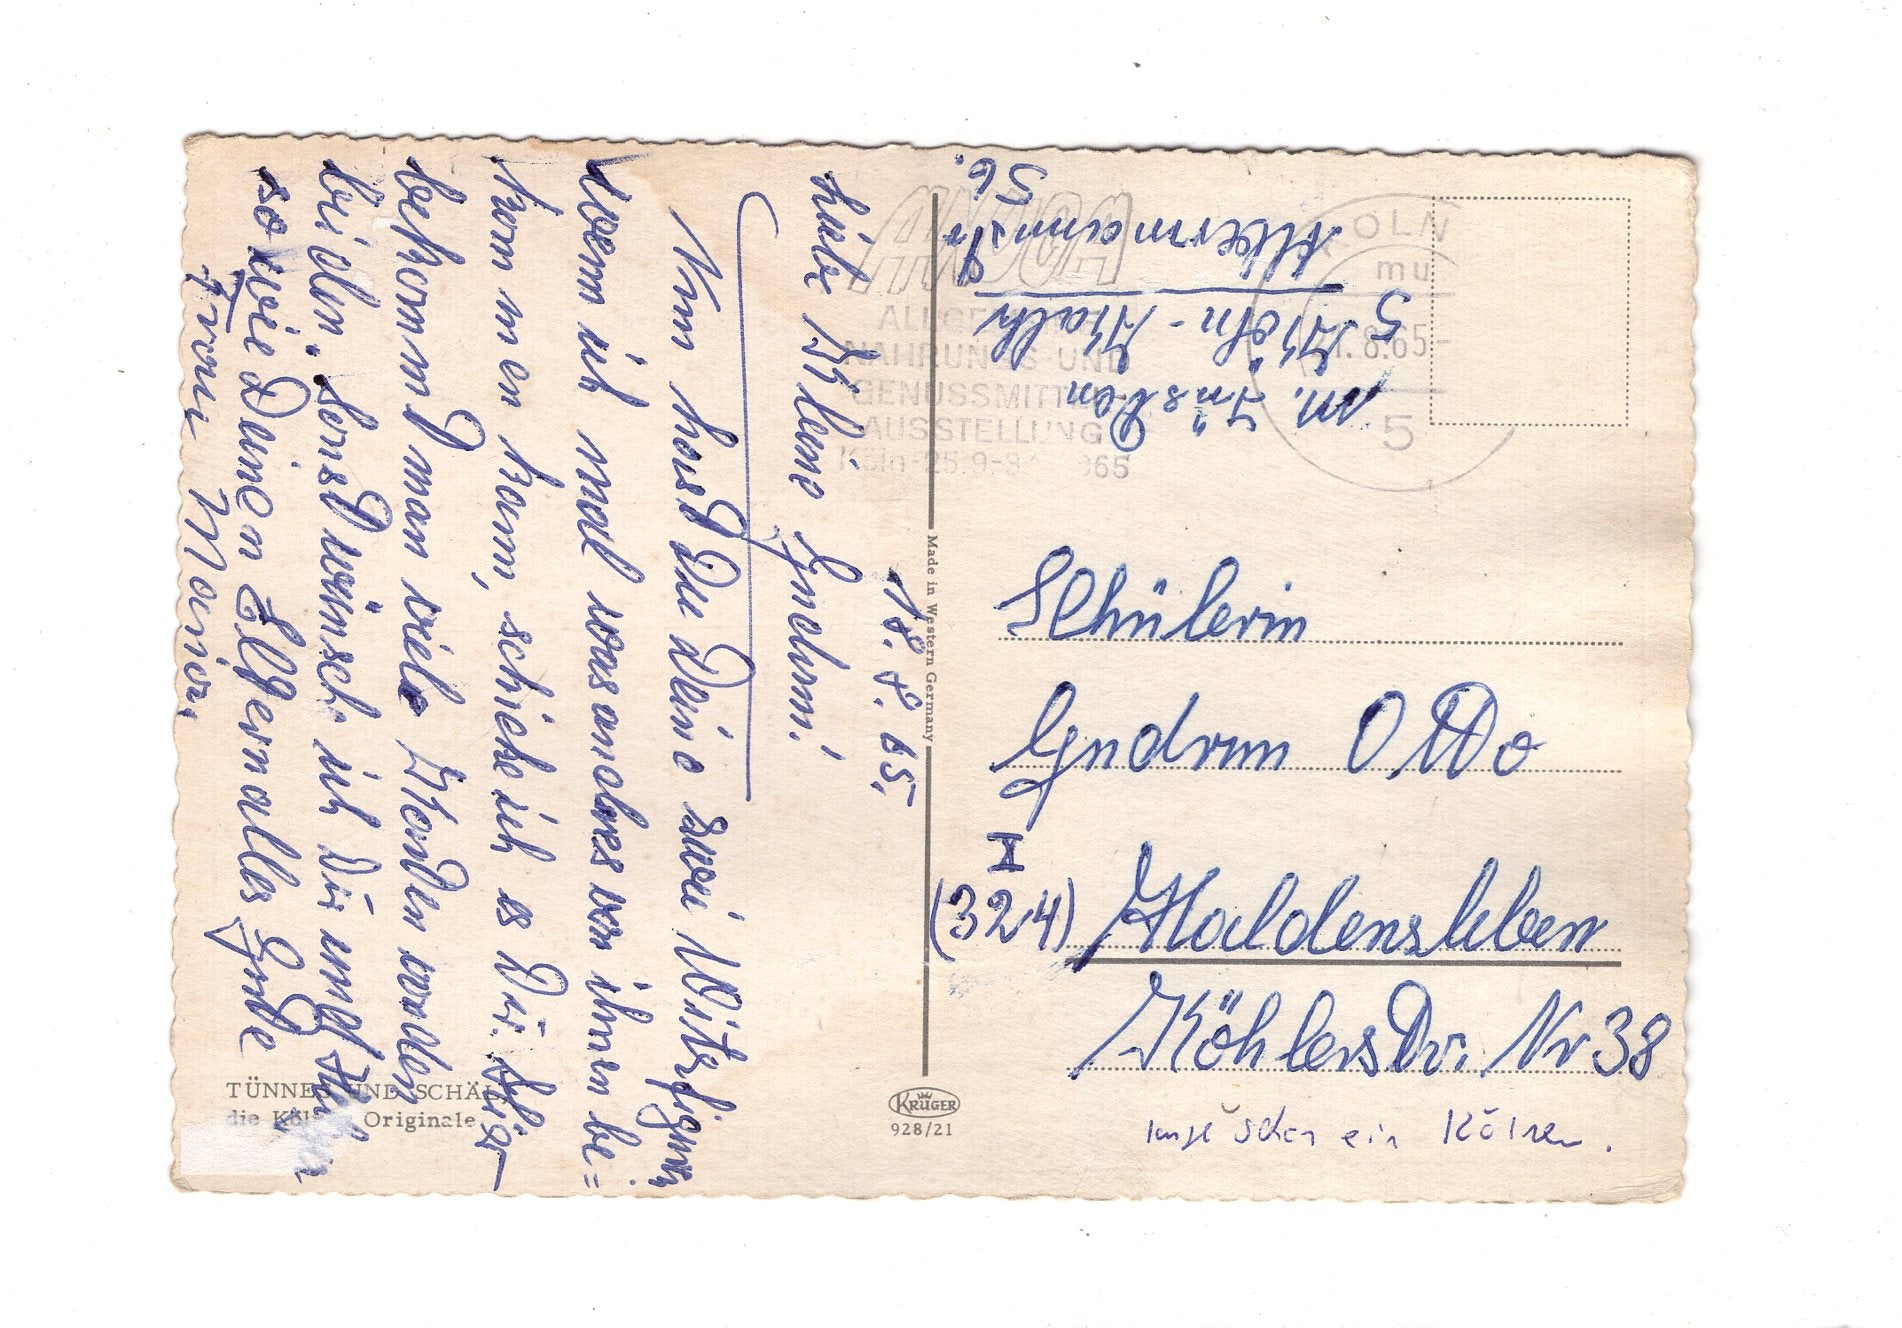 18.8.65.
Liebe kleine Gudrun!
Nun hast Du Deine zwei Witzfiguren
wenn ich mal was anderes von ihnen be=
kommen kann, schicke ich es Dir. Hier
bekommt man viele Karten von den
beiden. Sonst wünsche ich Dir und
sowie Deinen Eltern alles Gute
Frau Maria.
TÜNNES UND SCHÄL,
die Köl Originale
Made in Western Germany
KRÜGER
928/21
M. Füs
5 Köln-Kalk
56.
ANUGA
ALLGEMEINE
NAHRUNGS- UND
GENUSSMITTEL-
AUSSTELLUNG
Köln-25.9.-3 1965
KÖLN
mu
.8.65-
5
Schülerin
Gudrun Otto
X
(324) Haldensleben
Köhlerstr. Nr 38
schon ein